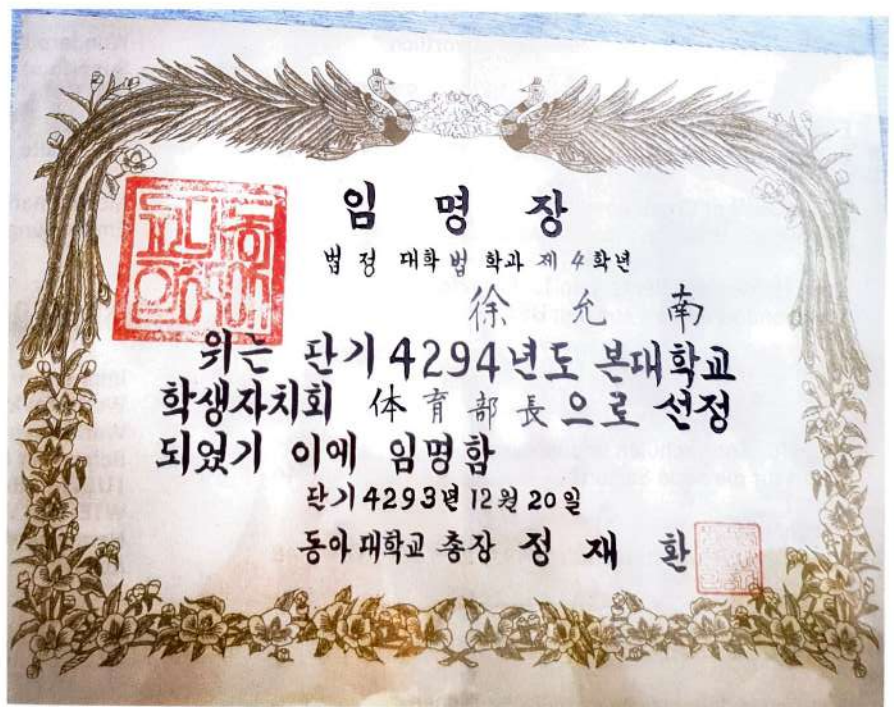 임 명 장
법 정 대학 법 학과 제 4 학년
徐 允 南
위는 단기 4294년도 본대학교
학생자치회 体 育 部 長 으로 선정
되었기 이에 임명함
단기 4293년 12월 20일
동아 대학교 총장 정 재 환